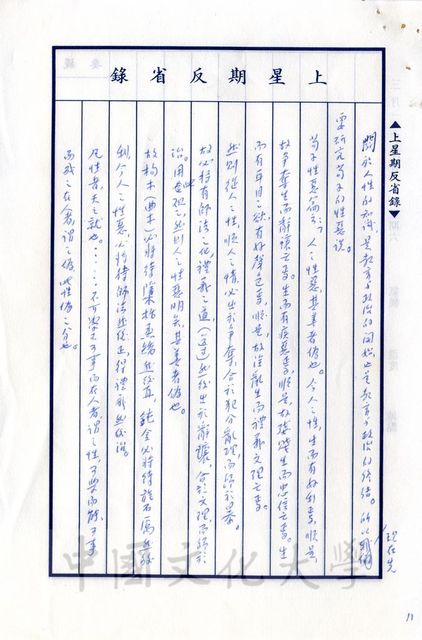 上星期反省錄
▲上星期反省錄▼
關於人性的知識是教育與政治的開始也是教育與政治的終結。所以我們
現在先
要研究荀子的性惡說。
荀子性惡篇云：人之性惡，其善者偽也。今人之性，生而有好利焉，順是
故爭奪生而辭讓亡焉。生而有疾惡焉，順是，故殘賊生而忠信亡焉。生
而有耳目之欲，有好聲色焉，順是，故淫亂生而禮義文理亡焉。
然則從人之性，順人之情，必出於爭奪，合於犯分亂理，而歸於暴。
故必將有師法之化，禮義之道，然後出於辭讓，合於文理而歸於
治。用此觀之，然則人之性惡明矣，其善者偽也。
故枸木必將待檃栝烝矯然後直，鈍金必將待礱厲然後
利，今人之性惡，必將待師法然後正，得禮義然後治。
凡性者，天之就也。……不可學不可事而在人者，謂之性，可學而能，可事
而成之在人者，謂之偽，此性偽之分也。
中國文化大學
11